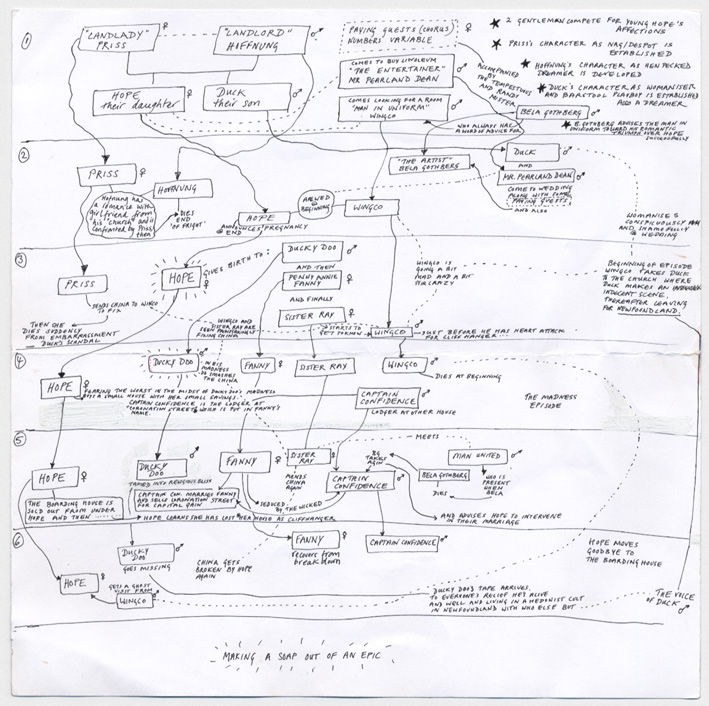 ①
"LANDLADY" ♀
PRISS
"LANDLORD" ♂
HOFFNUNG
PAYING GUESTS (CHORUS) ♀
NUMBERS VARIABLE
HOPE ♀
their daughter
DUCK ♂
their son
COMES TO BUY LINOLEUM
"THE ENTERTAINER" ♂
MR PEARLAND DEAN
COMES LOOKING FOR A ROOM
"MAN IN UNIFORM" ♂
WINGCO
ACCOMPANIED
BY THE
TEMPESTUOUS
AND RANDY
MISTER
BELA GOTHBERG ♂
WHO ALWAYS HAS
A WORD OF ADVICE FOR
★ 2 GENTLEMAN COMPETE FOR YOUNG HOPE'S
AFFECTIONS
★ PRISS'S CHARACTER AS NAG/DESPOT IS
ESTABLISHED
★ HOFFNUNG'S CHARACTER AS HEN PECKED
DREAMER IS DEVELOPED
★ DUCK'S CHARACTER AS WOMANISER
AND BARSTOOL PLAYBOY IS ESTABLISHED
ALSO A DREAMER
★ B. GOTHBERG ADVISES THE MAN IN
UNIFORM TOWARD HIS ROMANTIC
TRIUMPH OVER HOPE
SUCCESSFULLY
②
PRISS ♀
HOFFNUNG ♂
Hoffnung has
a romance with
girlfriend from
his "church" and is
confronted by Priss,
then
DIES
END
"OF FRIGHT"
HOPE ♀
ANNOUNCES PREGNANCY
@ END
ARE WED
@
BEGINNING
WINGCO ♂
"THE ARTIST" ♂
BELA GOTHBERG
DUCK ♂
AND
MR. PEARLAND DEAN ♂
COME TO WEDDING
ALONG WITH SOME
PAYING GUESTS
AND ALSO
WOMANISES
CONSPICUOUSLY
AND SHAMEFULLY
@ WEDDING
③
PRISS ♀
HOPE ♀
GIVES BIRTH TO:
DUCKY DOO ♂
AND THEN
PENNY ANNIE ♀
FANNY
AND FINALLY
SISTER RAY ♀
WINGCO IS
GOING A BIT
MAD AND A BIT
STIR CRAZY
BEGINNING OF EPISODE
WINGCO TAKES DUCK
TO THE CHURCH WHERE
DUCK MAKES AN
INDECENT SCENE,
THEREAFTER LEAVING
FOR NEWFOUNDLAND.
SENDS CHINA TO WINCO
TO FIX
THEN SHE
DIES SUDDENLY
FROM EMBARRASSMENT
@ DUCK'S SCANDAL
WINGCO AND
SISTER RAY ARE
SEEN
FIXING CHINA
STARTS TO
WINGCO ♂
JUST BEFORE HE HAS HEART ATTACK
FOR CLIFF HANGER
④
HOPE ♀
DUCKY DOO ♂
IN HIS
MADNESS
DD SMASHES
THE CHINA
FANNY ♀
SISTER RAY ♀
WINGCO ♂
DIES AT BEGINNING
FEARING THE WORST IN THE MIDST OF DUCKY DOO'S MADNESS
BUYS A SMALL HOUSE WITH HER SMALL SAVINGS.
CAPTAIN CONFIDENCE IS THE LODGER AT
"CORONATION STREET" WHICH IS PUT IN FANNY'S
NAME.
CAPTAIN ♂
CONFIDENCE
LODGER AT OTHER HOUSE
THE MADNESS
EPISODE
⑤
HOPE ♀
DUCKY ♂
DOO
TAMED INTO RELIGIOUS BLISS
FANNY ♀
SISTER ♀
RAY
MENDS
CHINA
AGAIN
MEETS
MAN UNITED ♂
BG
TAKES
AGAIN
CAPTAIN ♂
CONFIDENCE
BELA GOTHBERG ♂
DIES
WHO IS
PRESENT
WHEN
BELA
THE BOARDING HOUSE IS
SOLD OUT FROM UNDER
HOPE AND THEN .......
CAPTAIN CON. MARRIES FANNY
AND SELLS CORONATION STREET
FOR CAPITAL GAIN
SEDUCED
BY THE WICKED
HOPE LEARNS SHE HAS LOST HER HOUSE AS CLIFFHANGER
AND ADVISES HOPE TO INTERVENE
IN THEIR MARRIAGE
⑥
DUCKY ♂
DOO
GOES MISSING
FANNY ♀
recovers from
breakdown
CAPTAIN CONFIDENCE ♂
HOPE MOVES
GOODBYE TO
THE BOARDING HOUSE
CHINA GETS
BROKEN BY HOPE
AGAIN
HOPE ♀
GETS A GHOST
VISIT FROM
WINGCO ♂
DUCKY DOO'S TAPE ARRIVES,
TO EVERYONE'S RELIEF HE'S ALIVE
AND WELL AND LIVING IN A HEDONIST CULT
IN NEWFOUNDLAND WITH WHO ELSE BUT
THE VOICE
OF DUCK ♂
MAKING A SOAP OUT OF AN EPIC